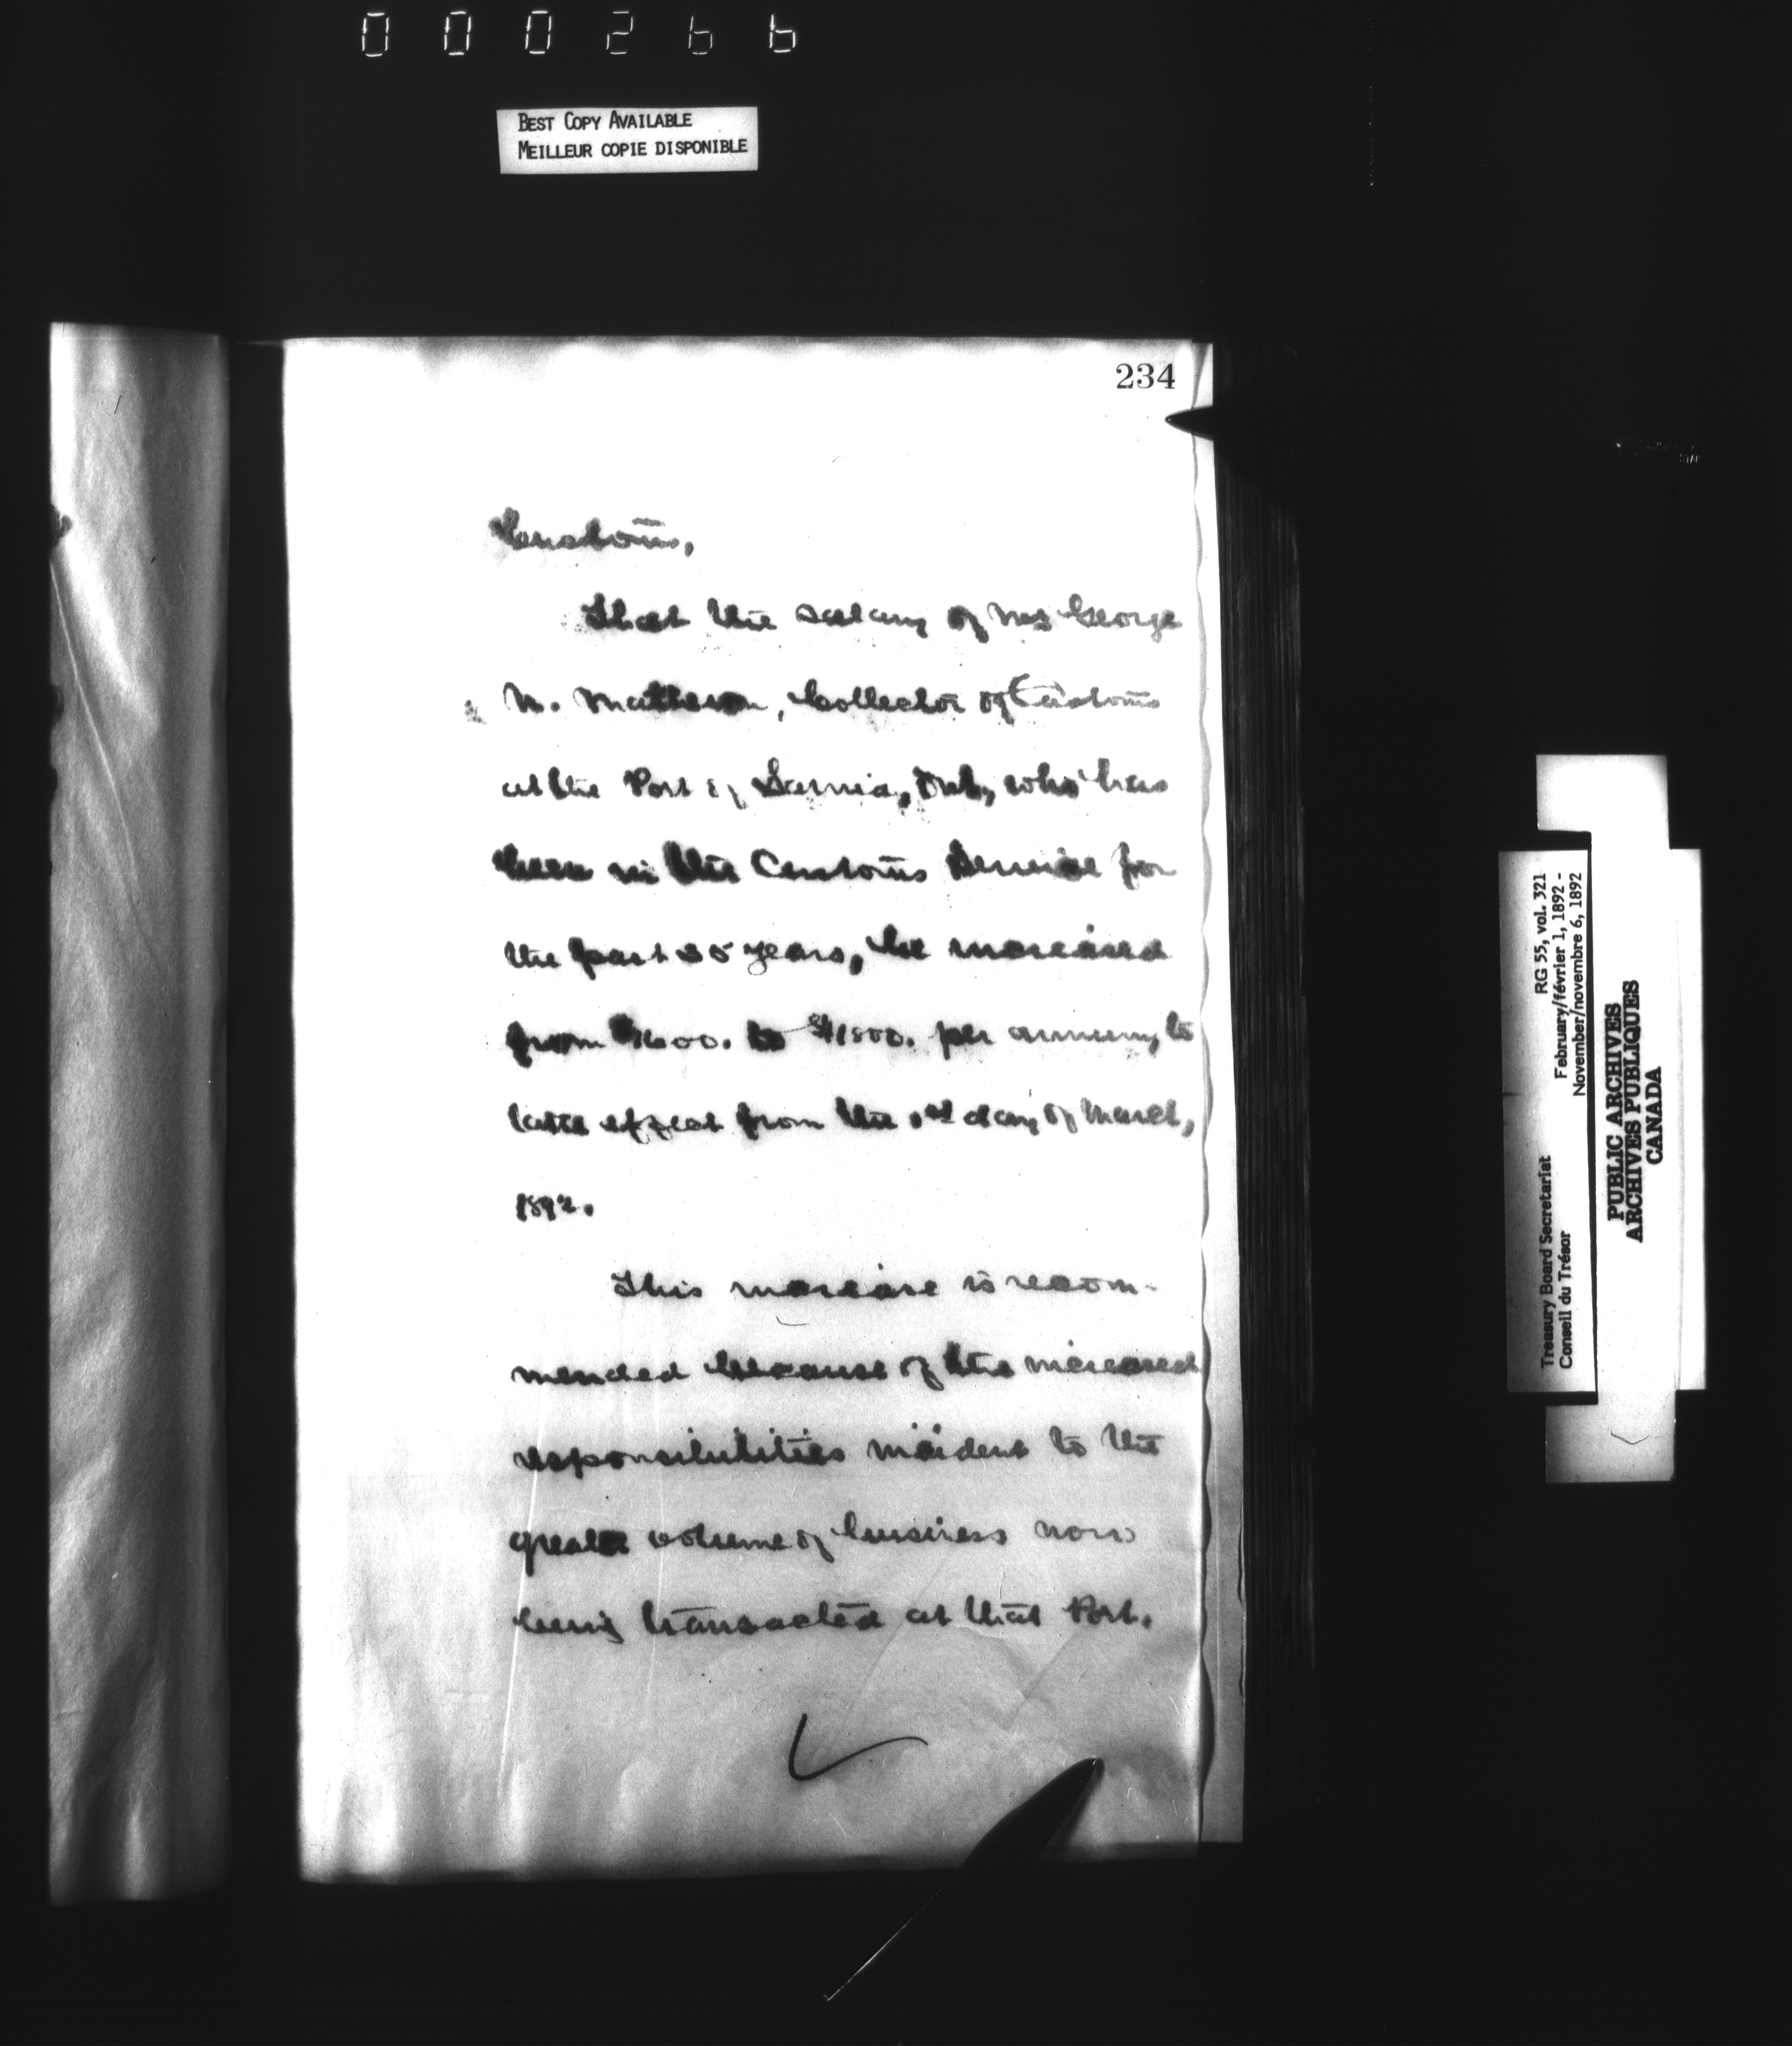 000266
BEST COPY AVAILABLE
MEILLEUR COPIE DISPONIBLE
234
Customs,
That the salary of Mr George
N. Matheson, Collector of Customs
at the Port of Sarnia, Ont, who has
been in the Customs Service for
the past years, be increased
from $1600. to $1800. per annum, to
take effect from the 1st day of March,
1892.
This increase is recom-
mended because of the increased
responsibilities incident to the
greater volume of business now
being transacted at that Port.
Treasury Board Secretariat RG 55, vol. 321
Conseil du Trésor February/février 1, 1892 -
November/novembre 6, 1892
PUBLIC ARCHIVES
ARCHIVES PUBLIQUES
CANADA